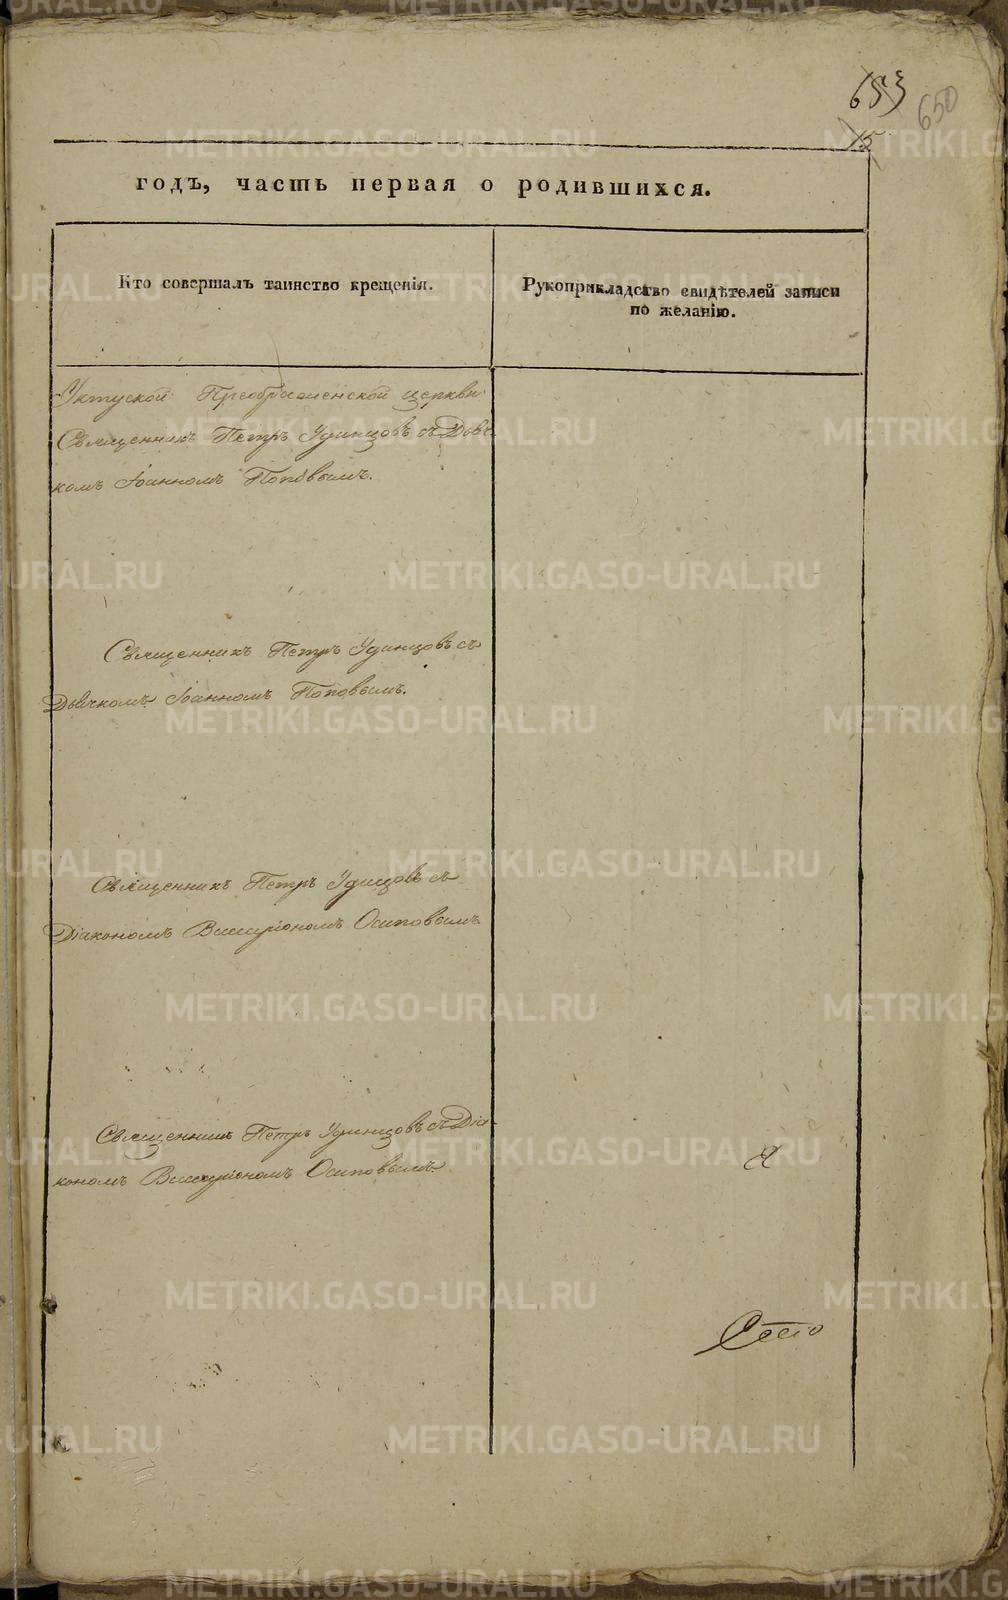 653
650
15
годъ, часть первая о родившихся.
Кто совершалъ таинство крещенія.
Рукоприкладство свидѣтелей записи
по желанію.
Уктуской Преображенской церкви
Священникъ Петръ Удинцовъ съ Дьяч
комъ Іоанномъ Поповымъ.
Священникъ Петръ Удинцовъ съ
Дьячкомъ Іоанномъ Поповымъ.
Священникъ Петръ Удинцовъ съ
Діакономъ Виссаріономъ Осиповымъ
Священникъ Петръ Удинцовъ съ Діа-
кономъ Виссаріономъ Осиповымъ
METRIKI.GASO-URAL.RU